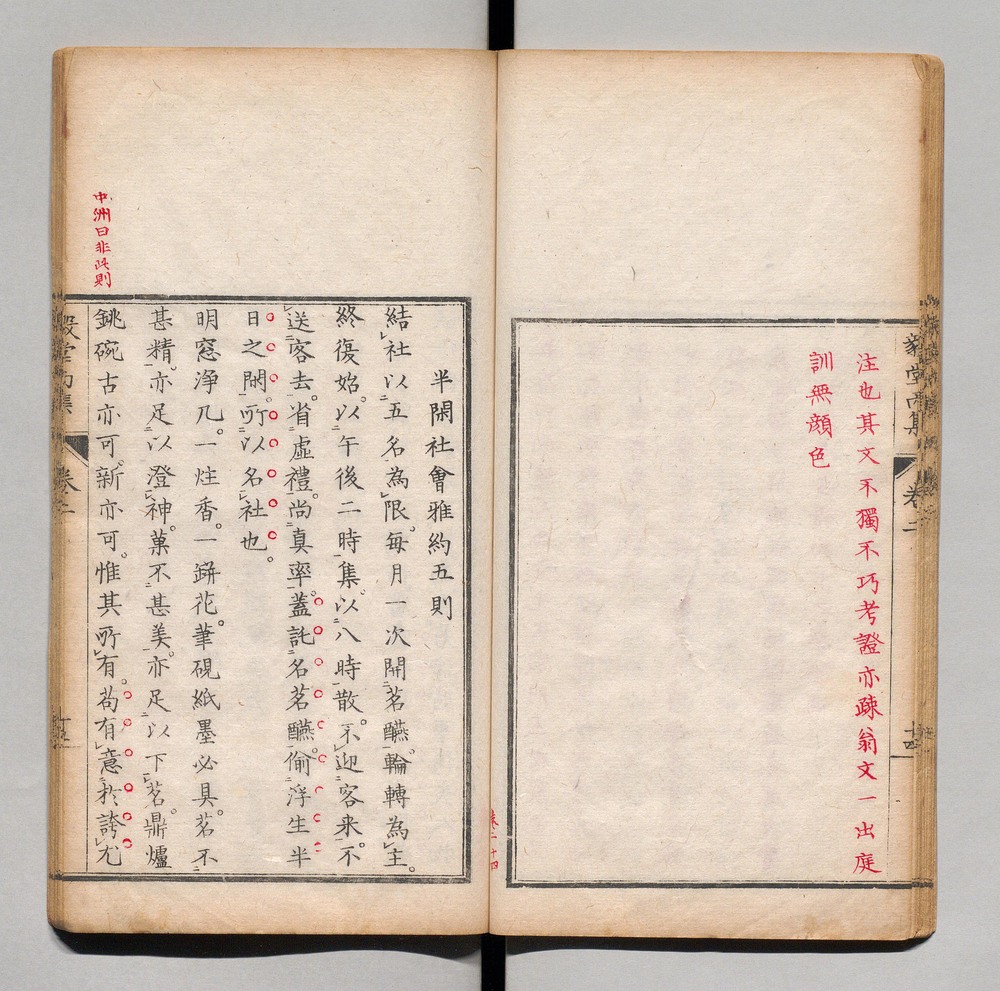 注也其文不獨不巧考證亦疎翁文一出庭
訓無顔色
卷二
十四
半閑社會雅約五則
結社以五名為限。每月一次開茗醼。輪轉為主。
終復始。以午後二時集。以八時散。不迎客来。不
送客去。省虛禮。尚真率。蓋託名茗醼。偷浮生半
日之閑。所以名社也。
明窓浄几。一炷香。一缾花。筆硯紙墨必具。茗不
甚精。亦足以澄神。菓不甚美。亦足以下茗。鼎爐
銚碗古亦可。新亦可。惟其所有。苟有意於誇尤
中洲曰非此則